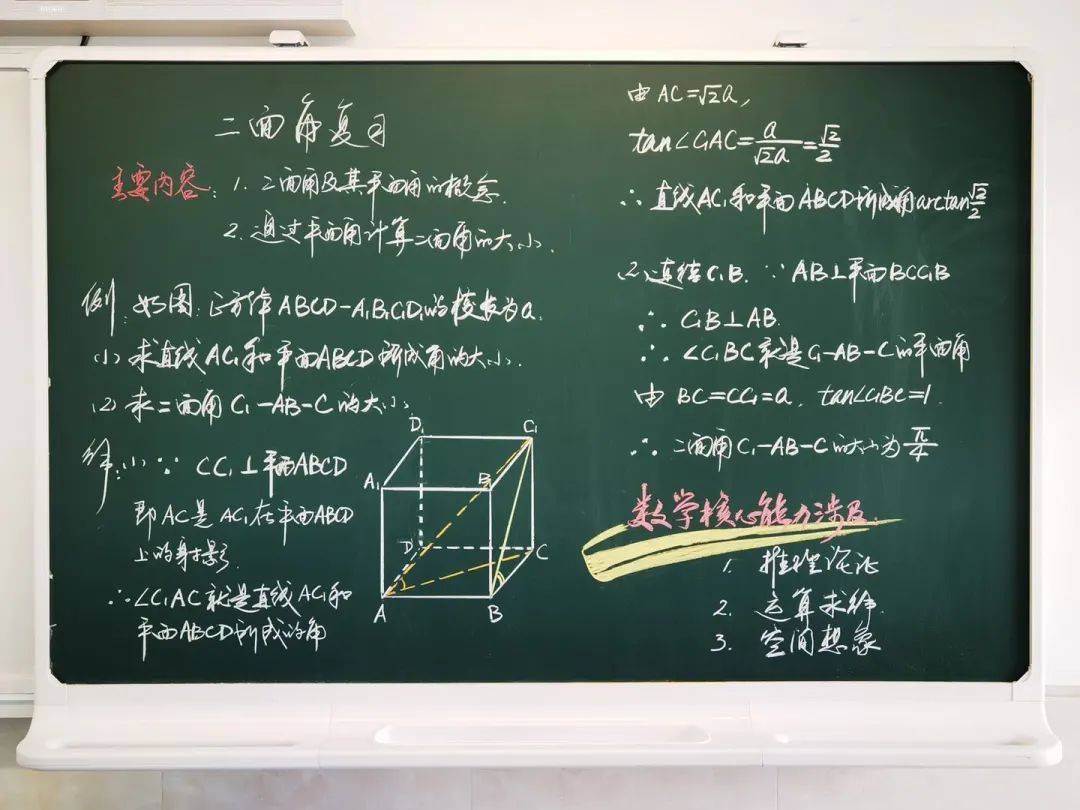 二面角复习
主要内容: 1. 二面角及其平面角的概念.
2. 通过平面角计算二面角的大小.
例. 如图. 正方体ABCD-A₁B₁C₁D₁的棱长为a.
(1) 求直线AC₁和平面ABCD所成角的大小.
(2) 求二面角C₁-AB-C的大小.
解: (1) ∵ CC₁⊥平面ABCD
即AC是AC₁在平面ABCD
上的射影.
∴ ∠C₁AC就是直线AC₁和
平面ABCD所成的角
D₁
C₁
A₁
B
D
C
A
B
由 AC=√2a,
tan∠C₁AC=a/√2a=√2/2
∴ 直线AC₁和平面ABCD所成角arctan√2/2
(2) 连结C₁B. ∵ AB⊥平面BCC₁B
∴ C₁B⊥AB.
∴ ∠C₁BC就是C₁-AB-C的平面角
由 BC=CC₁=a, tan∠C₁BC=1.
∴ 二面角C₁-AB-C的大小为π/4
数学核心能力涉及.
1. 推理论证
2. 运算求解.
3. 空间想象